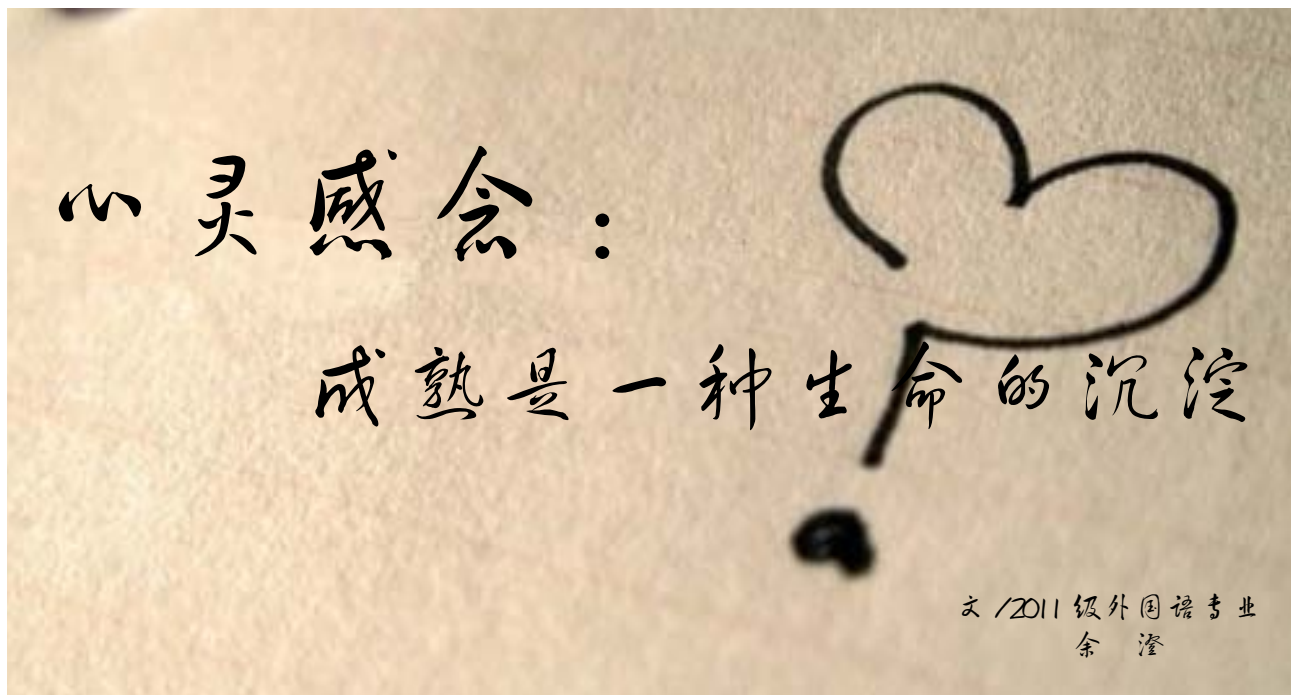 心灵感念：
成熟是一种生命的沉淀
文/2011级外国语专业
余 澄